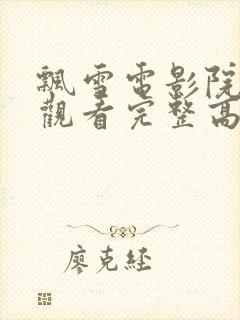 飄雪電影院
觀看完整高
廖克經